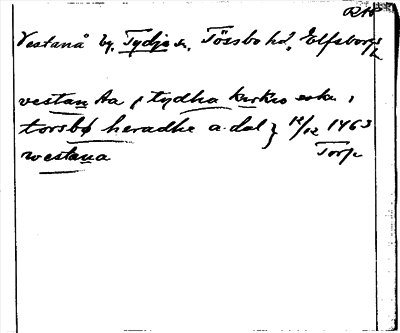 RAP
Vestanå by, Tydje sn, Tössbo hd, Elfsborgs l.
vestan Aa i tydha kirkio sokn i
torsbø heradhe a dal } 12/12 1463
westana Torp